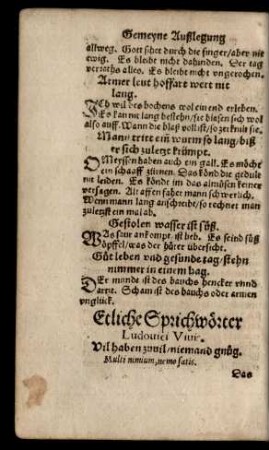 Gemeyne Außlegung
allweg. Gott siht durch die finger/aber nit
ewig. Es bleibt nicht dahinden. Der tag
verraths alles. Es bleibt nicht vngerochen.
Armer leut hoffart wert nit
lang.
ICh wil des bochens wol ein end erleben.
Es kan nit lang bestehn/sie blasen sich wol
also auff. Wann die blaß voll ist/so zerknilt sie.
Man tritt ein wurm so lang/biß
er sich zuletzt krümpt.
OMeyssen haben auch ein gall. Es möcht
ein schaaff zürnen. Das könd die gedult
nit leiden. Es könde im das almüsen keiner
versagen. Alt affen faher mann schwerlich.
Wenn mann lang anschreibt/so rechnet man
zuletzt ein mal ab.
Gestolen wasser ist süß.
WAs saur ankompt ist lieb. Es seind süß
öpffel/was der hüter übersicht.
Güt leben vnd gesunde tag/stehn
nimmer in einem hag.
DEr munde ist des bauchs hencker vnnd
artzt. Scham ist des bauchs oder armen
vnglück.
Etliche Sprichwörter
Ludouici Viuis.
Vil haben zuuil/niemand gnüg.
Multi nimium, nemo satis.
Das